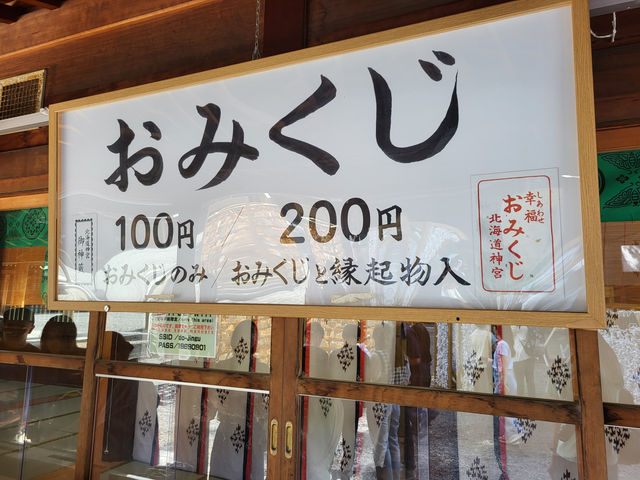 おみくじ
100円 / 200円
おみくじのみ / おみくじと縁起物入
北海道神宮
御神籤
しあわせ
幸福
おみくじ
北海道神宮
SSID
PASS